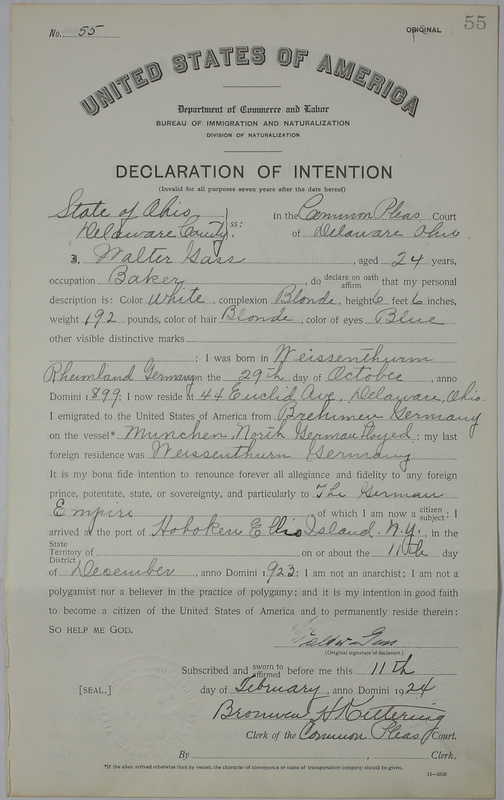 No. 55
ORIGINAL
55
UNITED STATES OF AMERICA
Department of Commerce and Labor
BUREAU OF IMMIGRATION AND NATURALIZATION
DIVISION OF NATURALIZATION
DECLARATION OF INTENTION
(Invalid for all purposes seven years after the date hereof)
State of Ohio
Delaware County ss:
In the Common Pleas Court
of Delaware Ohio.
I, Walter Gass, aged 24 years,
occupation Baker, do declare on oath affirm that my personal
description is: Color White, complexion Blonde, height 6 feet 6 inches,
weight 192 pounds, color of hair Blonde, color of eyes Blue
other visible distinctive marks
; I was born in Weissenthurm
Rheinland Germany on the 29th day of October, anno
Domini 1899; I now reside at 44 Euclid Ave, Delaware, Ohio.
I emigrated to the United States of America from Brehmen Germany
on the vessel* Munchen, North German Lloyed; my last
foreign residence was Weissenthurn Germany
It is my bona fide intention to renounce forever all allegiance and fidelity to any foreign
prince, potentate, state, or sovereignty, and particularly to The German
Empire, of which I am now a citizen subject; I
arrived at the port of Hoboken Ellis Island. N.Y., in the
State Territory District of on or about the 11th day
of December, anno Domini 1923; I am not an anarchist; I am not a
polygamist nor a believer in the practice of polygamy; and it is my intention in good faith
to become a citizen of the United States of America and to permanently reside therein:
SO HELP ME GOD.
Walter Gass
(Original signature of declarant.)
Subscribed and sworn to affirmed before me this 11th
[SEAL.] day of February, anno Domini 1924
Bronwen H Kettering
Clerk of the Common Pleas Court.
By , Clerk.
*If the alien arrived otherwise than by vessel, the character of conveyance or name of transportation company should be given.